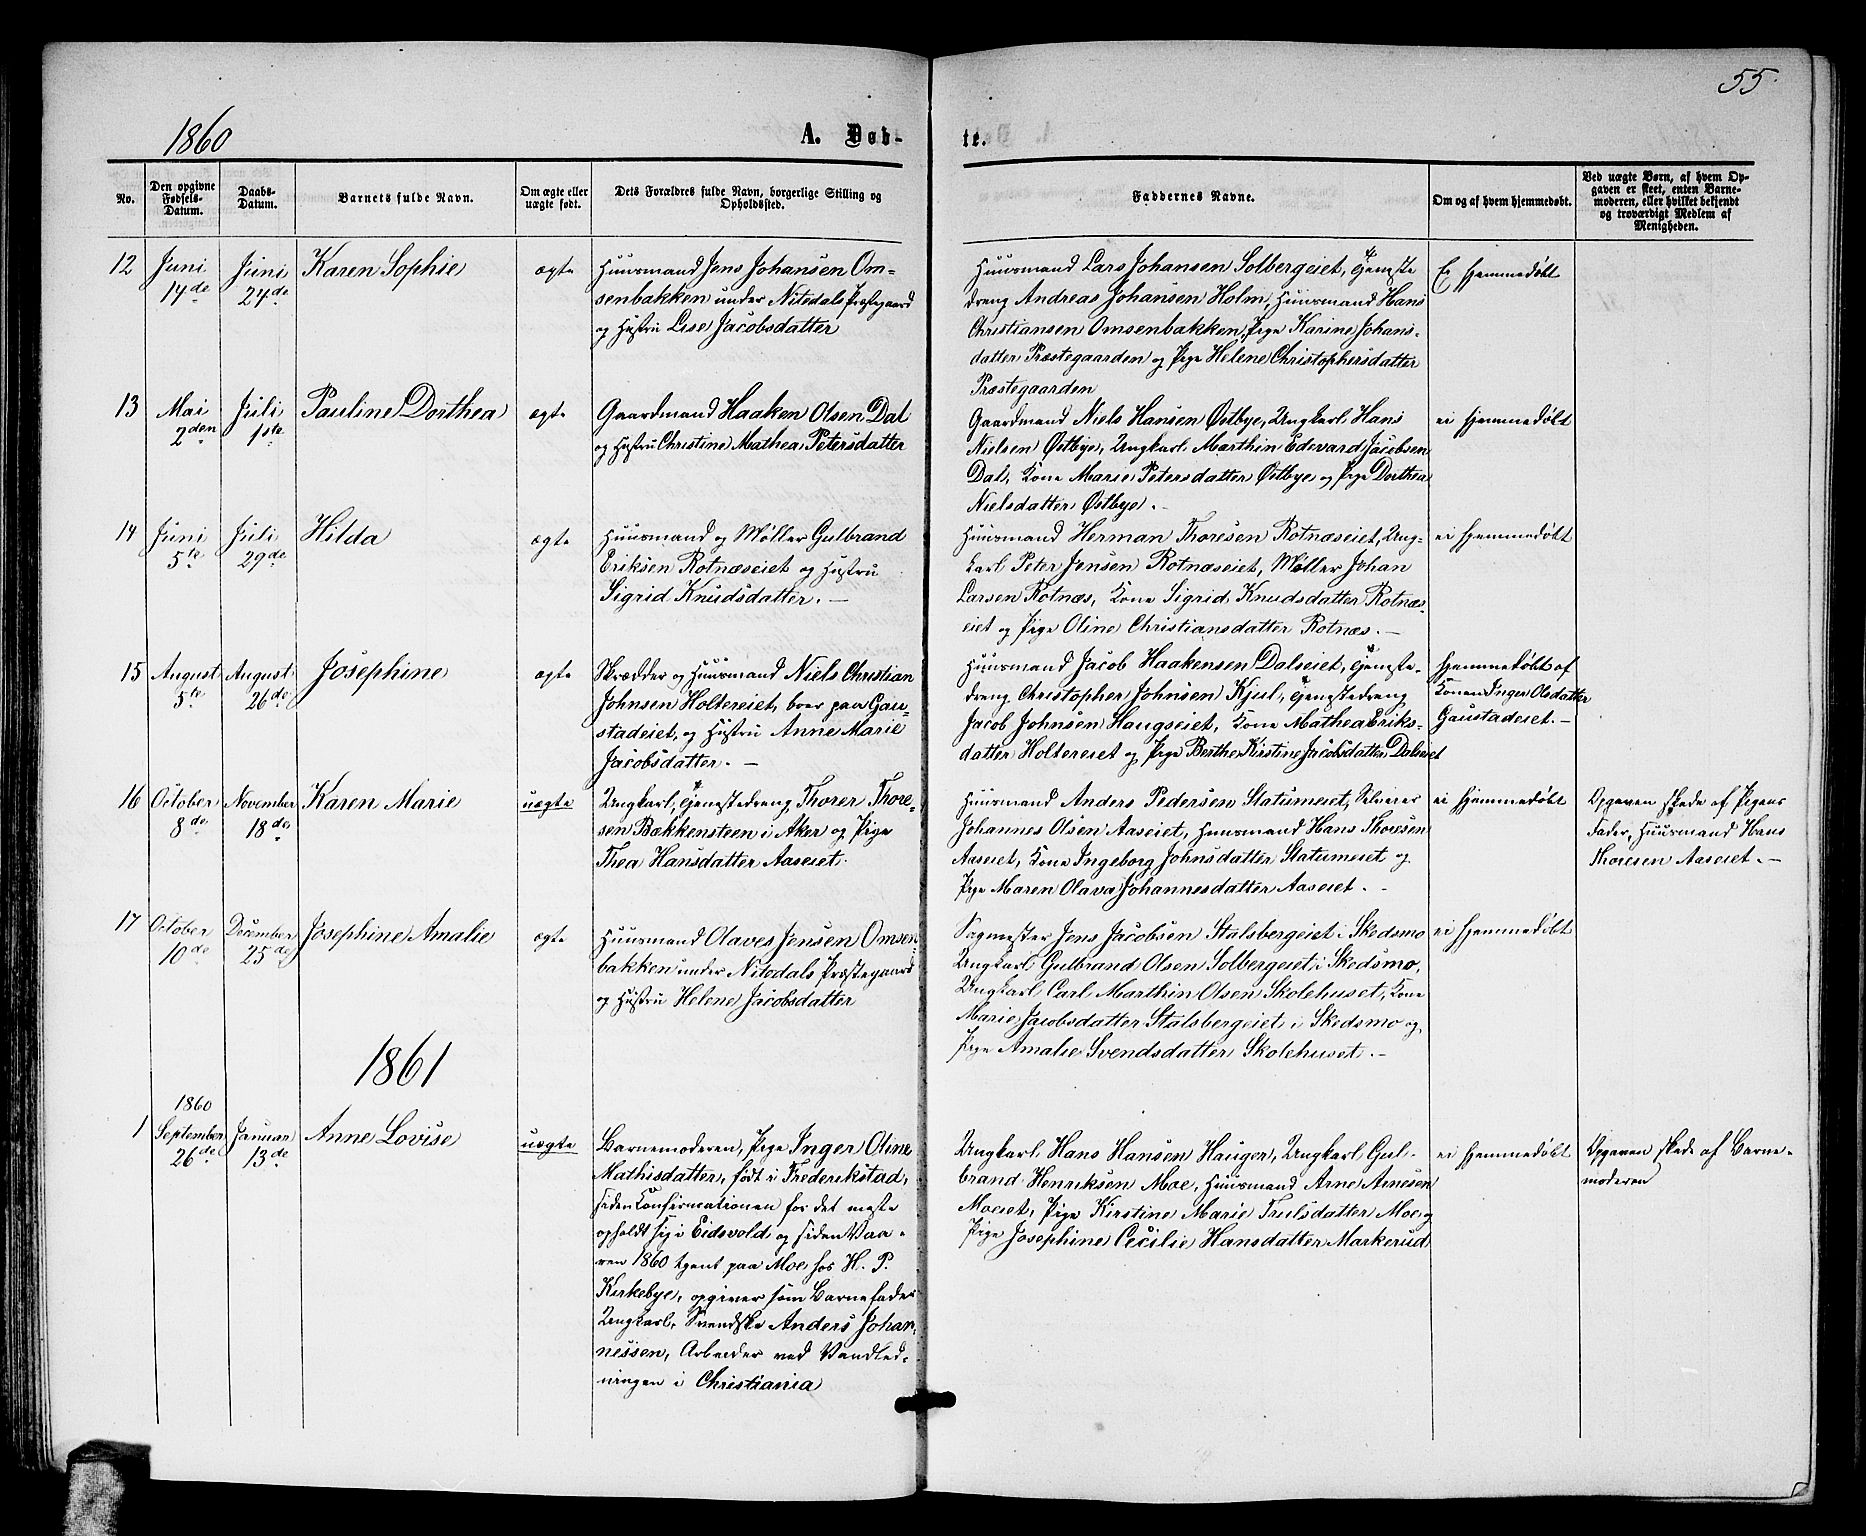 55.
1860
A. Døb-
te.
No.
Den opgivne Fødsels-Datum.
Daabs-Datum.
Barnets fulde Navn.
Om ægte eller uægte født.
Dets Forældres fulde Navn, borgerlige Stilling og Opholdssted.
Faddernes Navne.
Om og af hvem hjemmedøbt.
Ved uægte Børn, af hvem Op-
gaven er skeet, enten Barne-
moderen, eller hvilket bekjendt
og troværdigt Medlem af
Menigheden.
12
Juni 14de
Juni 24de
Karen Sophie
ægte
Huusmand Jens Johansen Om-
senbakken under Nitedals Præstegaard
og Hustru Lise Jacobsdatter
Huusmand Lars Johansen Solbergeiet, Tjeneste
dreng Andreas Johansen Holm, Huusmand Hans
Christiansen Omsenbakken, Pige Karine Johans-
datter Præstegaarden og Pige Helene Christophersdatter
Præstegaarden
Ei hjemmedøbt
13
Mai 2den
Juli 1ste
Pauline Dorthea
ægte
Gaardmand Haaken Olsen Dal
og Hustru Christine Mathea Petersdatter
Gaardmand Niels Hansen Østbye, Ungkarl Hans
Nielsen Østbye, Ungkarl Marthin Edevard Jacobsen
Dal, Kone Marie Petersdatter Østbye og Pige Dorthea
Nielsdatter Østbye. -
ei hjemmedøbt
14
Juni 5te
Juli 29de
Hilda
ægte
Huusmand og Møller Gulbrand
Eriksen Rotnæseiet og Hustru
Sigrid Knudsdatter. -
Huusmand Herman Thoresen Rotnæseiet, Ung-
karl Peter Jensen Rotnæseiet, Møller Johan
Larsen Rotnæs, Kone Sigrid Knudsdatter Rotnæs-
eiet og Pige Oline Christiansdatter Rotnæs. -
ei hjemmedøbt
15
August 5te
August 26de
Josephine
ægte
Skrædder og Huusmand Niels Christian
Johnsen Holtereiet, boer paa Gau-
stadeiet, og Hustru Anne Marie
Jacobsdatter. -
Huusmand Jacob Haakensen Dalseiet, Tjeneste-
dreng Christopher Johnsen Kjul, Tjenestedreng
Jacob Johnsen Haugseiet, Kone Mathea Eriks-
datter Holtereiet og Pige Berthe Kirstine Jacobsdatter Dalseiet
hjemmedøbt af
Konen Inger Olsdatter
Gaustadeiet. -
16
October 8de
November 18de
Karen Marie
uægte
Ungkarl, Tjenestedreng Thorer Thore-
sen Bækkensteen i Aker og Pige
Thea Hansdatter Aaseiet.
Huusmand Anders Pedersen Statumeiet, Selveier
Johannes Olsen Aaseiet, Huusmand Hans Thoresen
Aaseiet, Kone Ingeborg Johnsdatter Statumeiet og
Pige Maren Olava Johannesdatter Aaseiet. -
ei hjemmedøbt
Opgaven skede af Pigens
Fader, Huusmand Hans
Thoresen Aaseiet. -
17
October 10de
December 25de
Josephine Amalie
ægte
Huusmand Olaves Jensen Omsen-
bakken under Nitedals Præstegaard
og Hustru Helene Jacobsdatter
Sagmester Jens Jacobsen Stalsbergeiet i Skedsmo
Ungkarl Gulbrand Olsen Solbergeiet i Skedsmo,
Ungkarl Carl Marthin Olsen Skolehuset, Kone
Marie Jacobsdatter Stalsbergeiet i Skedsmo og
Pige Amalie Svendsdatter Skolehuset. -
ei hjemmedøbt
1861
1
1860 September 26de
Januar 13de
Anne Lovise
uægte
Barnemoderen, Pige Inger Oline
Mathisdatter, født i Frederikstad,
siden Confirmationen for det meste
opholdt sig i Eidsvold og siden Vaa-
ren 1860 tjent paa Moe hos H. P.
Kirkebye, opgiver som Barnefader
Ungkarl, Svendske Anders Johan-
nessen, Arbeider ved Vandled-
ningen i Christiania
Ungkarl Hans Hansen Hauger, Ungkarl Gul-
brand Henriksen Moe, Huusmand Arne Arnesen
Moeiet, Pige Kirstine Marie Trulsdatter Moe og
Pige Josephine Cecilie Hansdatter Markerud
ei hjemmedøbt
Opgaven skede af Barne-
moderen